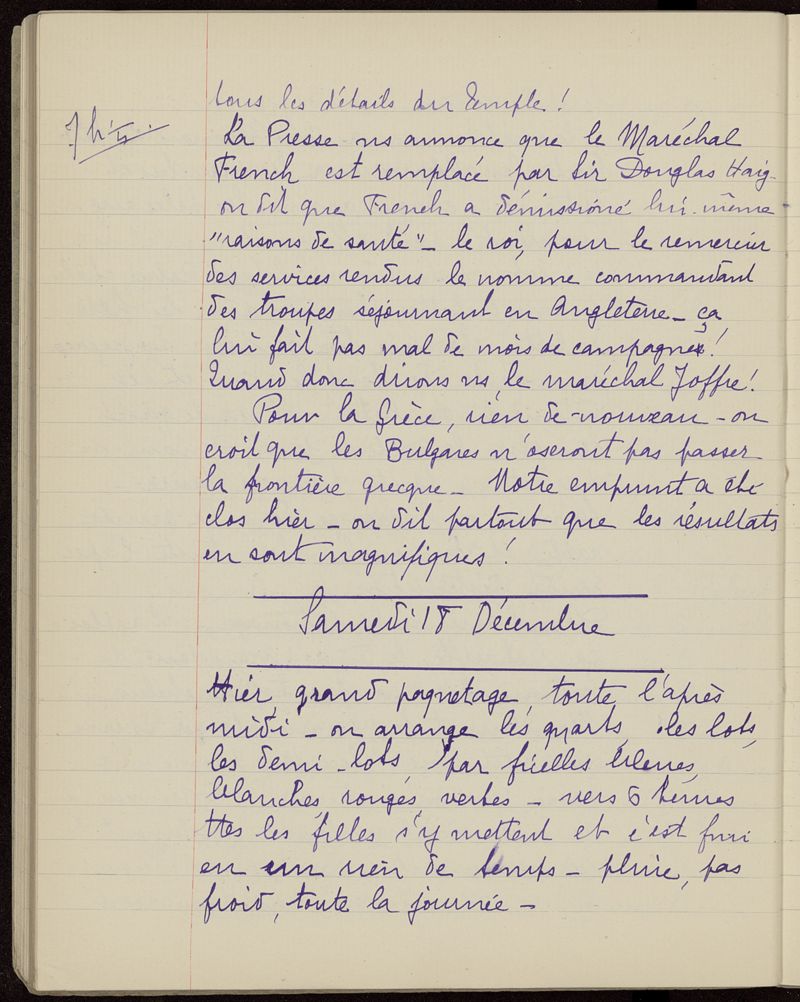 tous les détails du Temple !
7 h ½.
La Presse ns annonce que le Maréchal
French est remplacé par Sir Douglas Haig-
on dit que French a démissioné lui-même
"raisons de santé" - le roi, pour le remercier
des services rendus le nomme commandant
des troupes séjournant en Angleterre - ça
lui fait pas mal de mois de campagne !
Quand donc dirons ns, le maréchal Joffre !
Pour la Grèce, rien de-nouveau - on
croit que les Bulgares n'oseront pas passer
la frontière grecque - Notre emprunt a été
clos hier - on dit partout que les résultats
en sont magnifiques !
Samedi 18 Décembre
Hier, grand paquetage, toute l'après
midi - on arrange les quarts, les lots,
les demi-lots, par ficelles bleues,
blanches, rouges, vertes - vers 5 heures
ttes les filles s'y mettent et c'est fini
en un rien de temps - pluie, pas
froid, toute la journée -